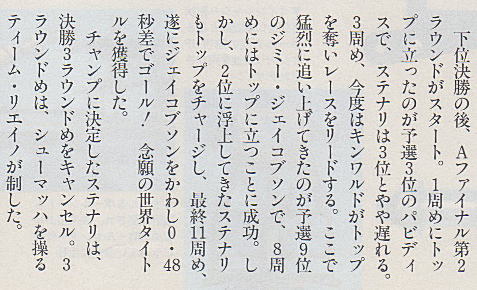 下位決勝の後、Aファイナル第2
ラウンドがスタート。1周めにトッ
プに立ったのが予選3位のパビディ
スで、ステナリは3位とやや遅れる。
3周め、今度はキンワルドがトップ
を奪いレースをリードする。ここで
猛烈に追い上げてきたのが予選9位
のジミー・ジェイコブソンで、8周
めにはトップに立つことに成功。し
かし、2位に浮上してきたステナリ
もトップをチャージし、最終11周め、
遂にジェイコブソンをかわし0・48
秒差でゴール! 念願の世界タイト
ルを獲得した。
チャンプに決定したステナリは、
決勝3ラウンドめをキャンセル。3
ラウンドめは、シューマッハを操る
ティーム・リエイノが制した。